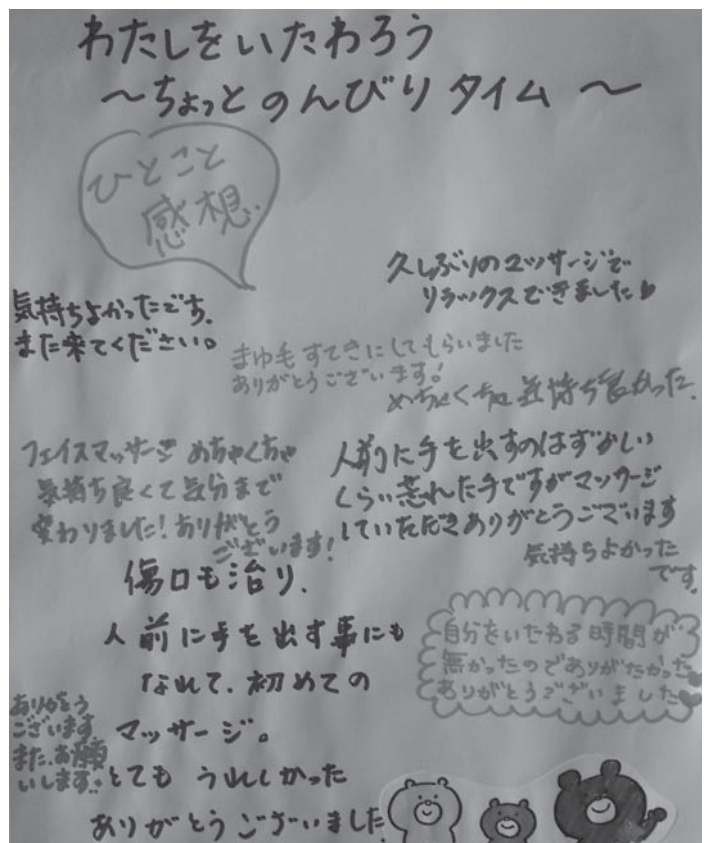 わたしをいたわろう
〜ちょっとのんびりタイム〜
ひとこと
感想.
久しぶりのマッサージで
リラックスできました♥
気持ちよかったです.
また来てください。
まゆ毛すてきにしてもらいました
ありがとうございます!
めちゃくちゃ気持ち良かった.
フェイスマッサージめちゃくちゃ
気持ち良くて気分まで
変わりました!ありがとう
ございます!
人前に手を出すのはずかしい
くらい荒れた手ですがマッサージ
していただきありがとうございます
気持ちよかった
です.
傷口も治り、
人前に手を出す事にも
なれて、初めての
マッサージ。
とてもうれしかった
ありがとうございました.
自分をいたわる時間が
無かったのでありがたかった
ありがとうございました♥
ありがとう
ございます
また、お願
いします.